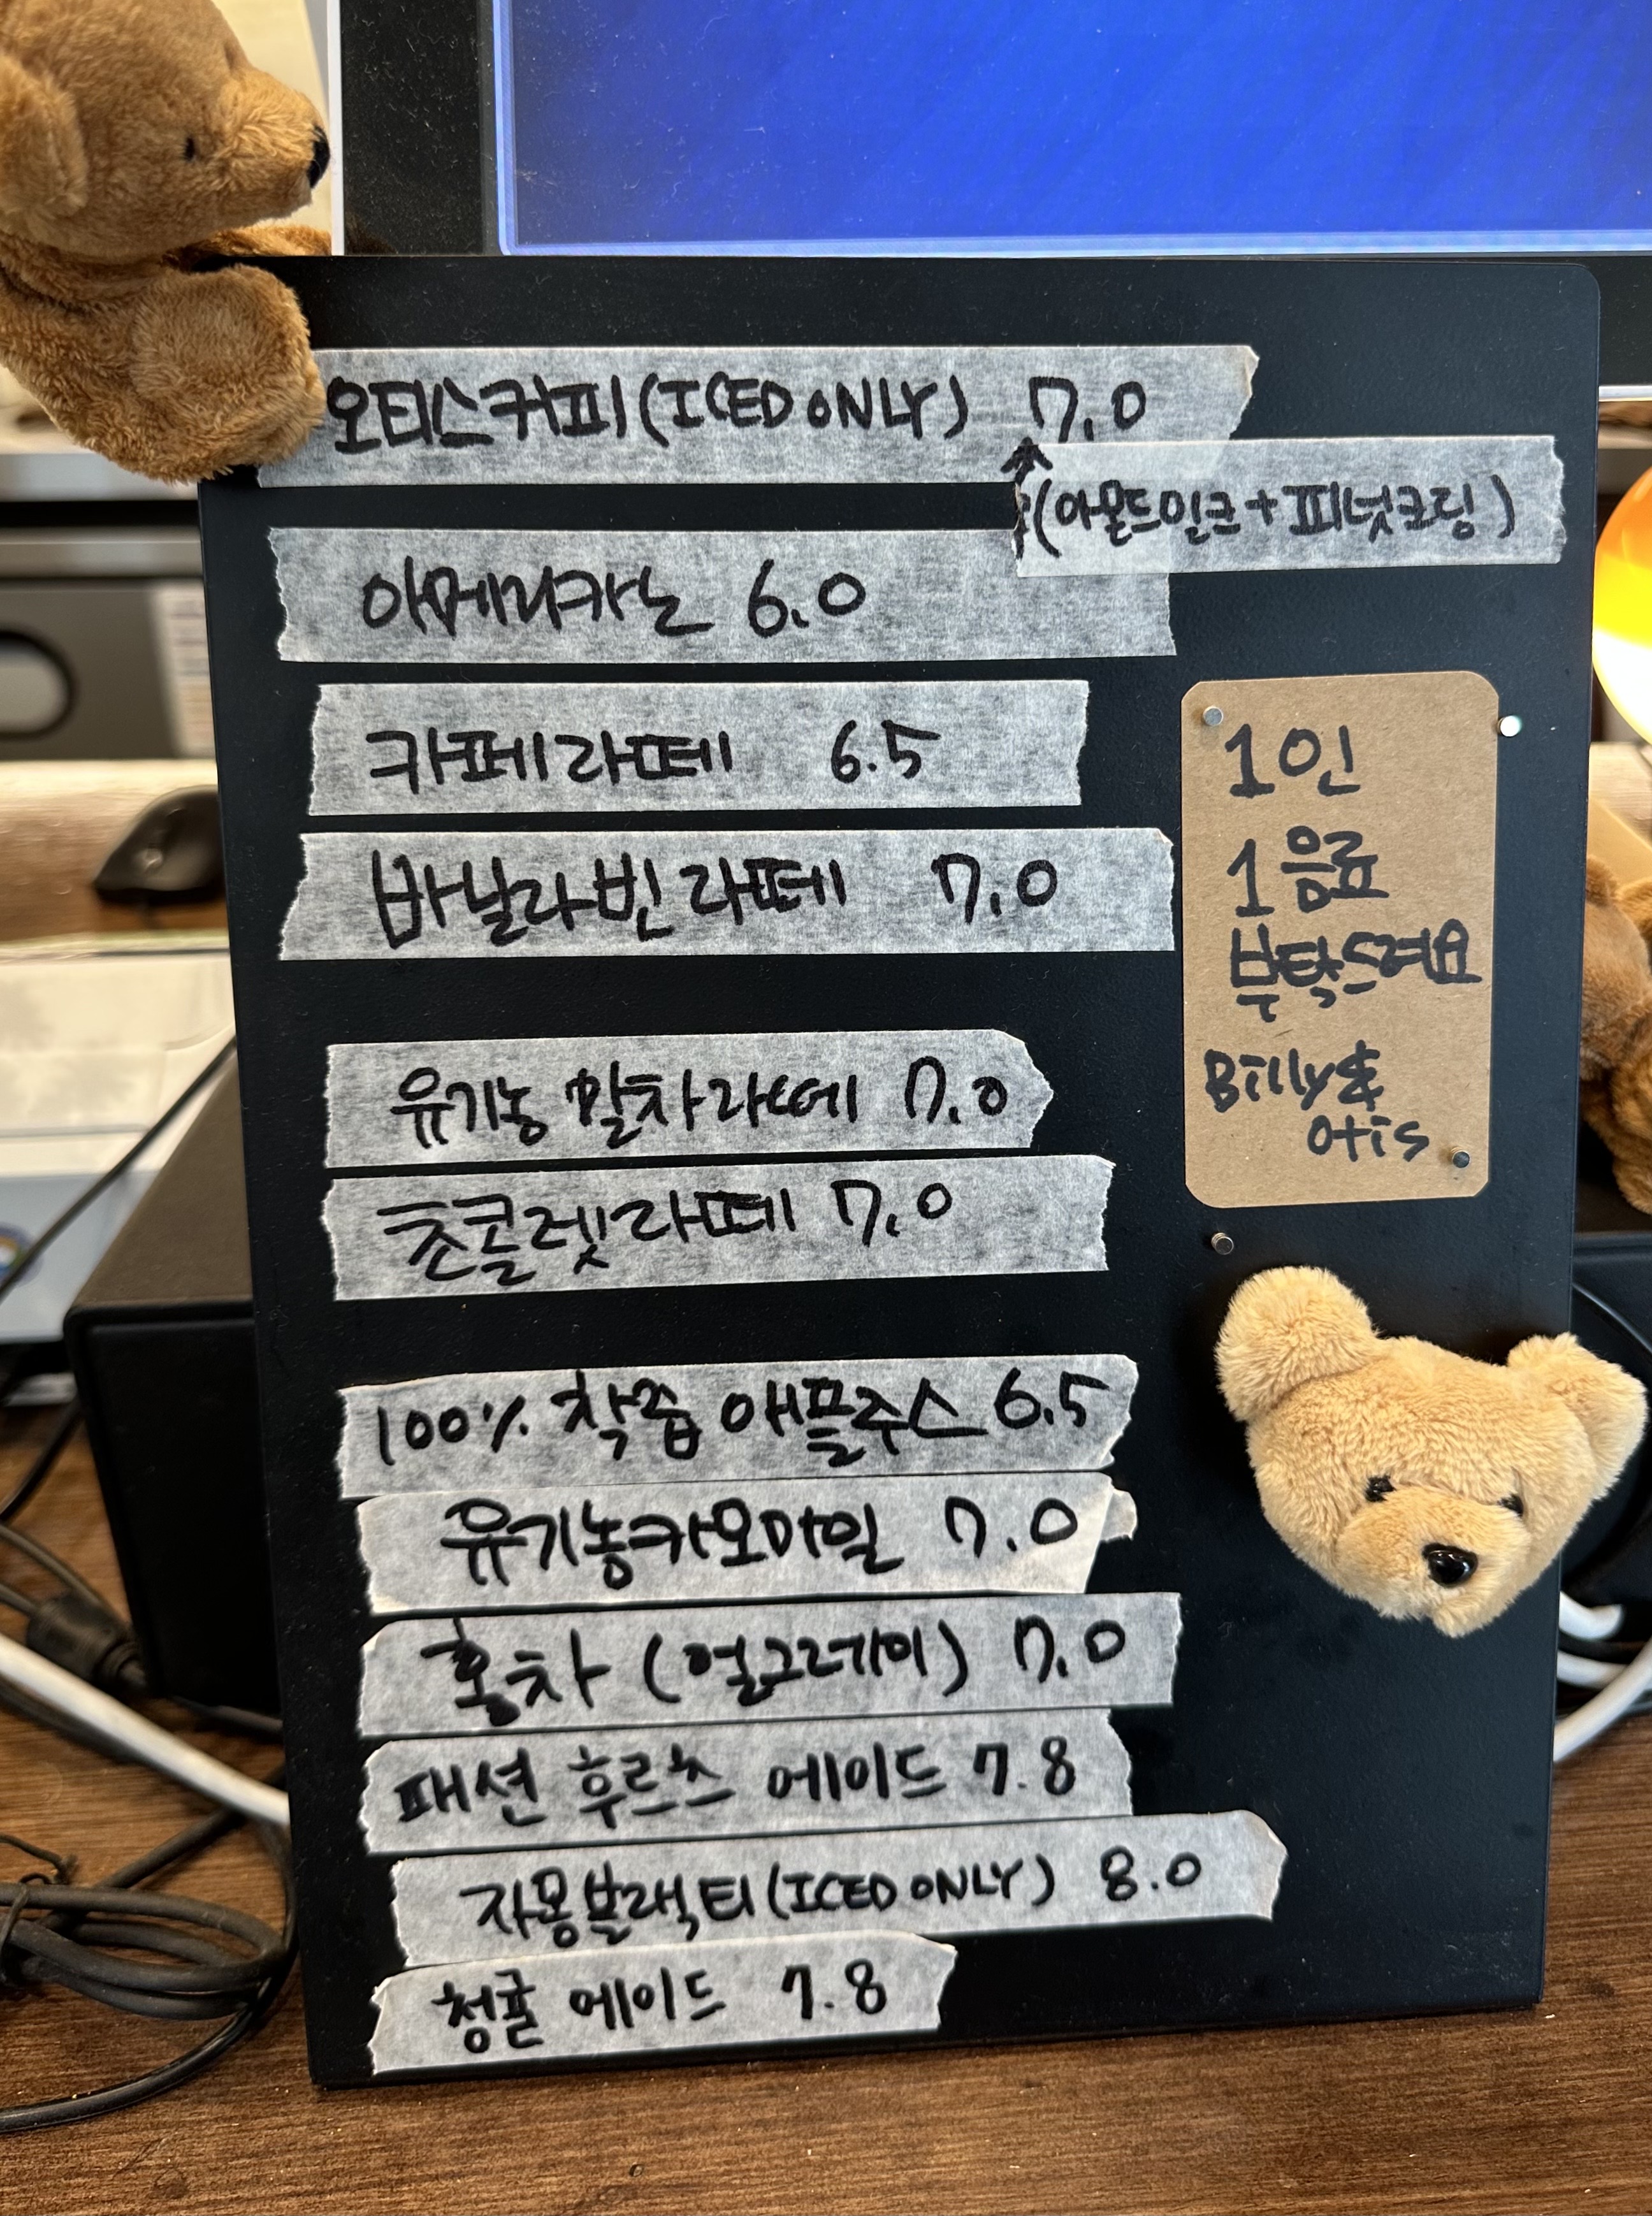 오티스커피(ICED ONLY) 7.0
(아몬드밀크+피넛크림)
아메리카노 6.0
카페라떼 6.5
바닐라빈라떼 7.0
유기농 말차라떼 7.0
초콜렛라떼 7.0
100% 착즙 애플주스 6.5
유기농카모마일 7.0
홍차 (얼그레이) 7.0
패션 후르츠 에이드 7.8
자몽블랙티(ICED ONLY) 8.0
청귤 에이드 7.8
1인
1음료
부탁드려요
Billy&
otis